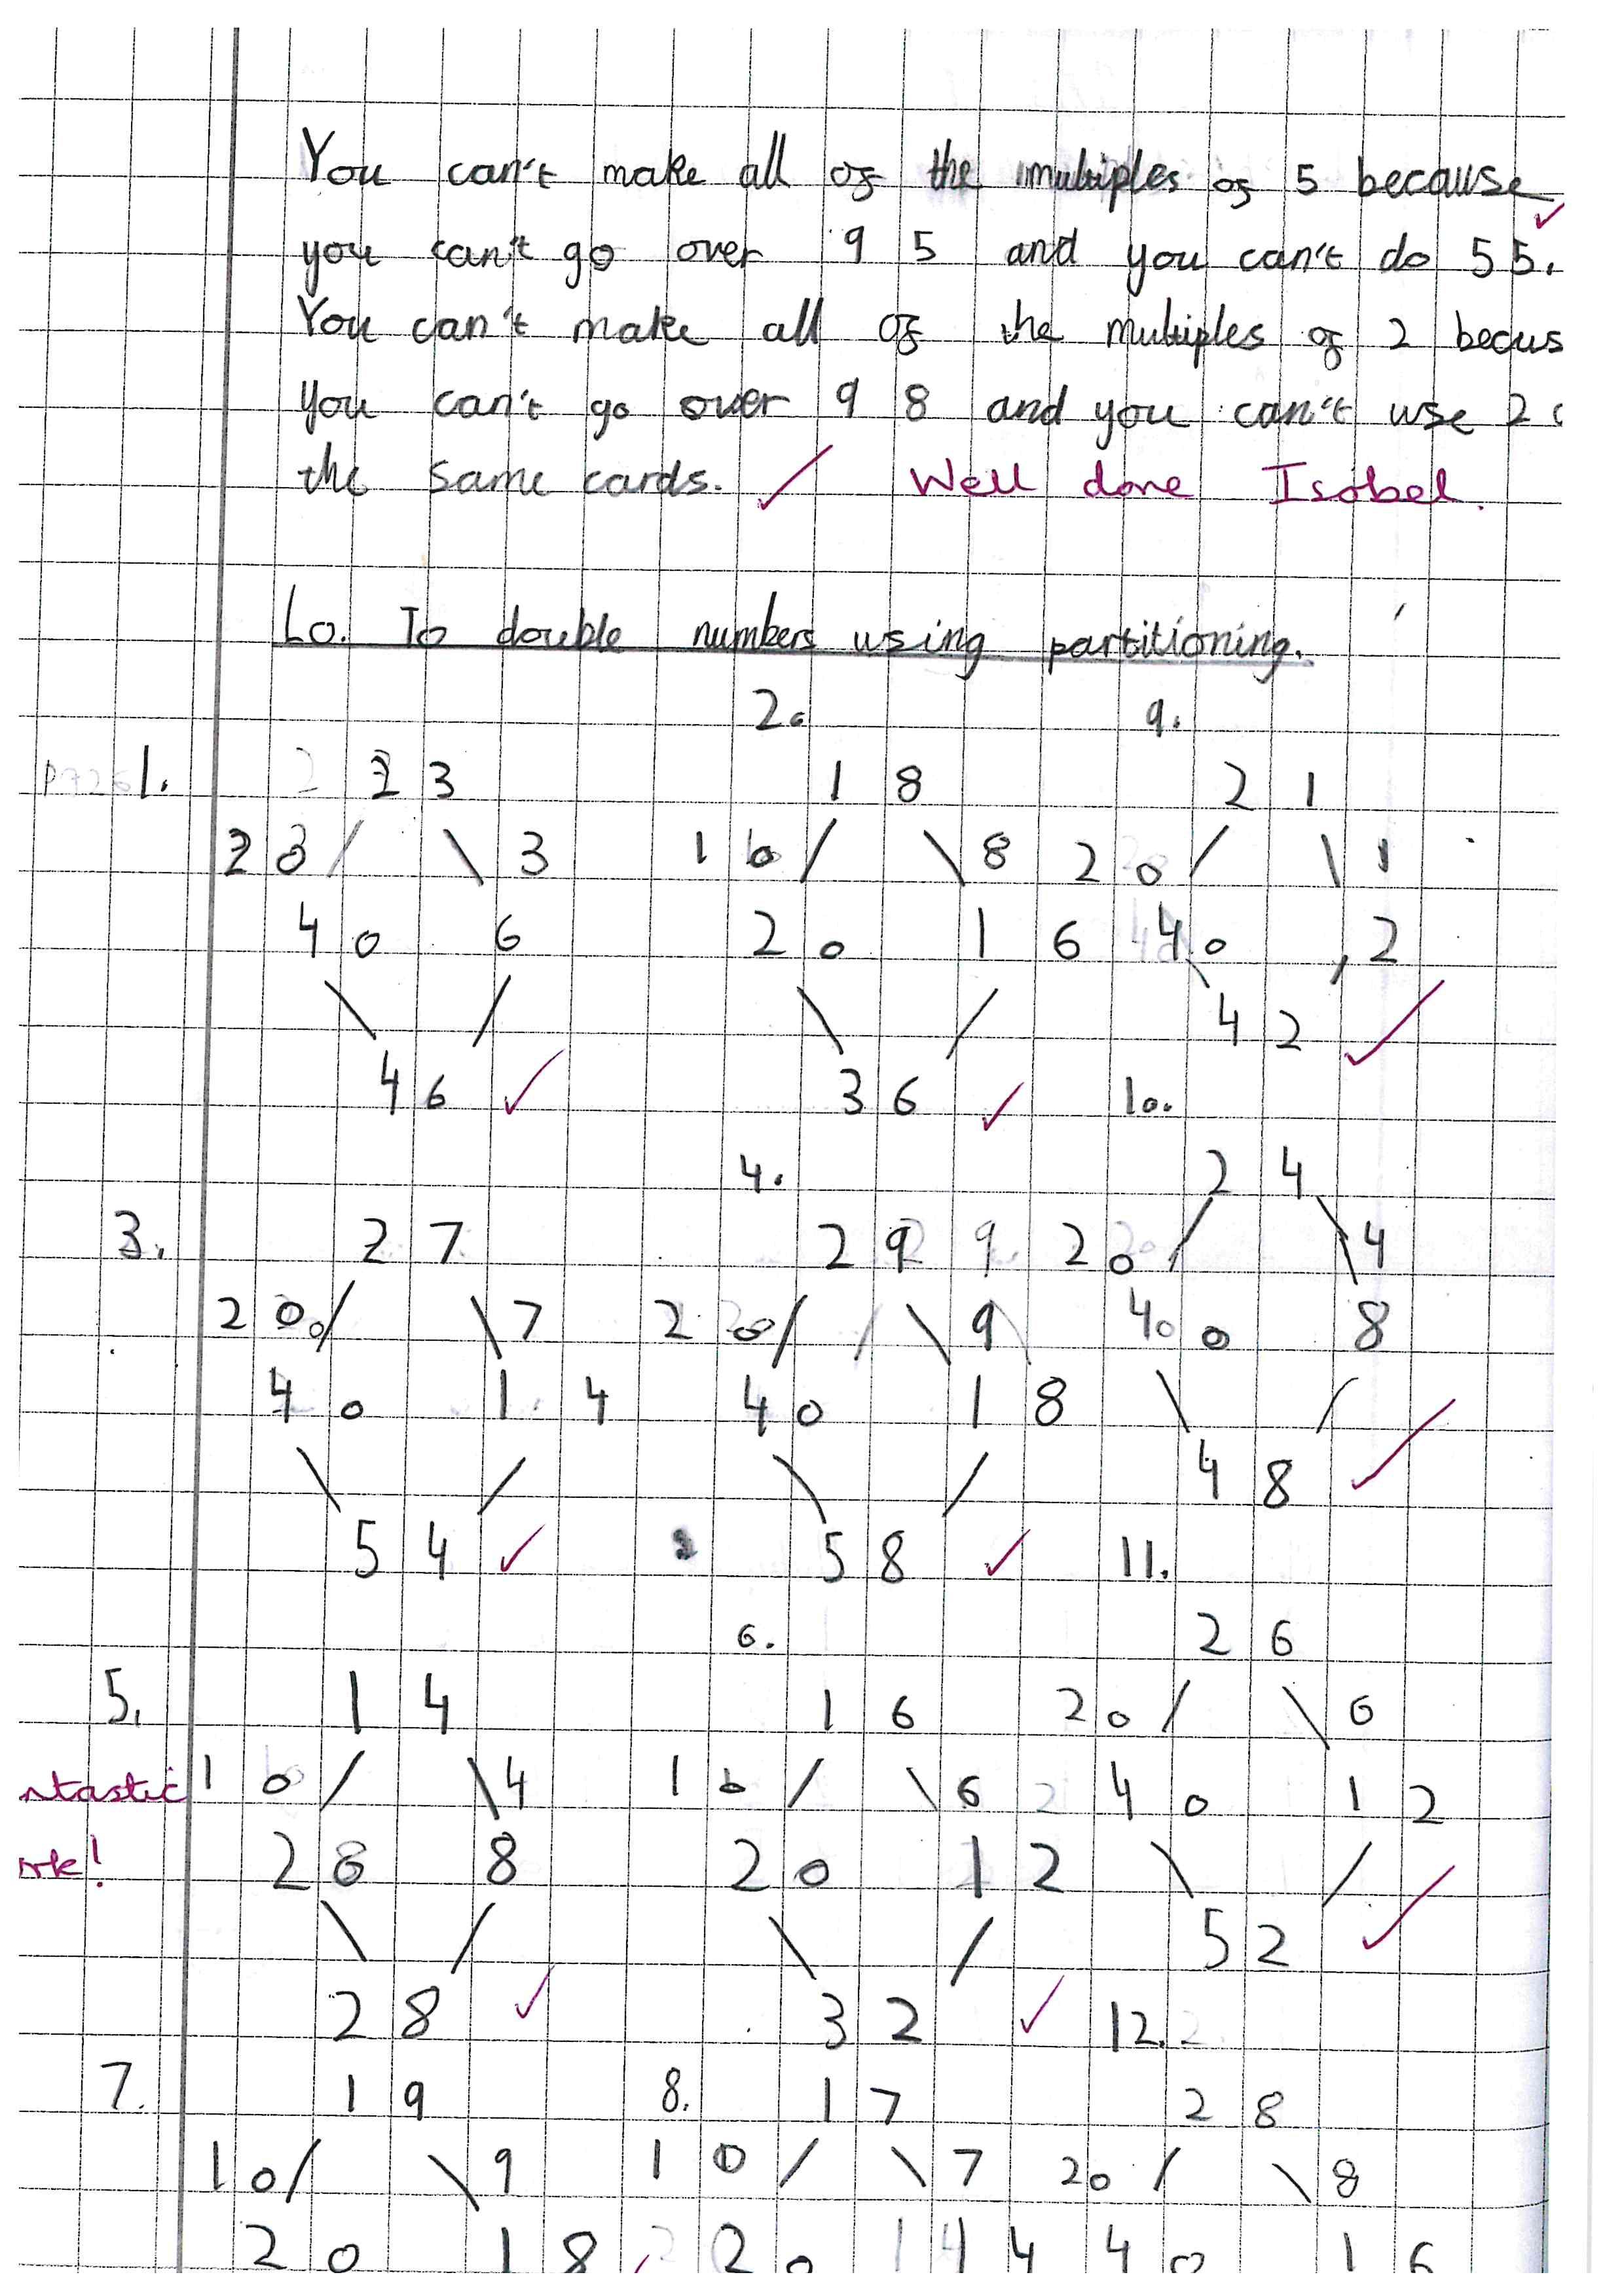 You can't make all of the multiples of 5 because
you can't go over 95 and you can't do 55.
You can't make all of the multiples of 2 becus
you can't go over 98 and you can't use 2
the same cards. Well done Isobel.
Lo. To double numbers using partitioning.
2. 9.
1. 23 18 21
20 / \ 3 10 / \ 8 20 / \ 1
40 6 20 16 40 2
\ / \ / 42
46 36 10.
4. 24
3. 27 29 9 20 / \ 4
20 / \ 7 20 / \ 9 40 8
40 14 40 18 \ /
\ / \ / 48
54 58 11.
6. 26
5. 14 16 20 / \ 6
ntastic 10 / \ 4 10 / \ 6 40 12
rk! 20 8 20 12 \ /
\ / \ / 52
28 32 12.
7. 19 8. 17 28
10 / \ 9 10 / \ 7 20 / \ 8
20 18 20 14 40 16